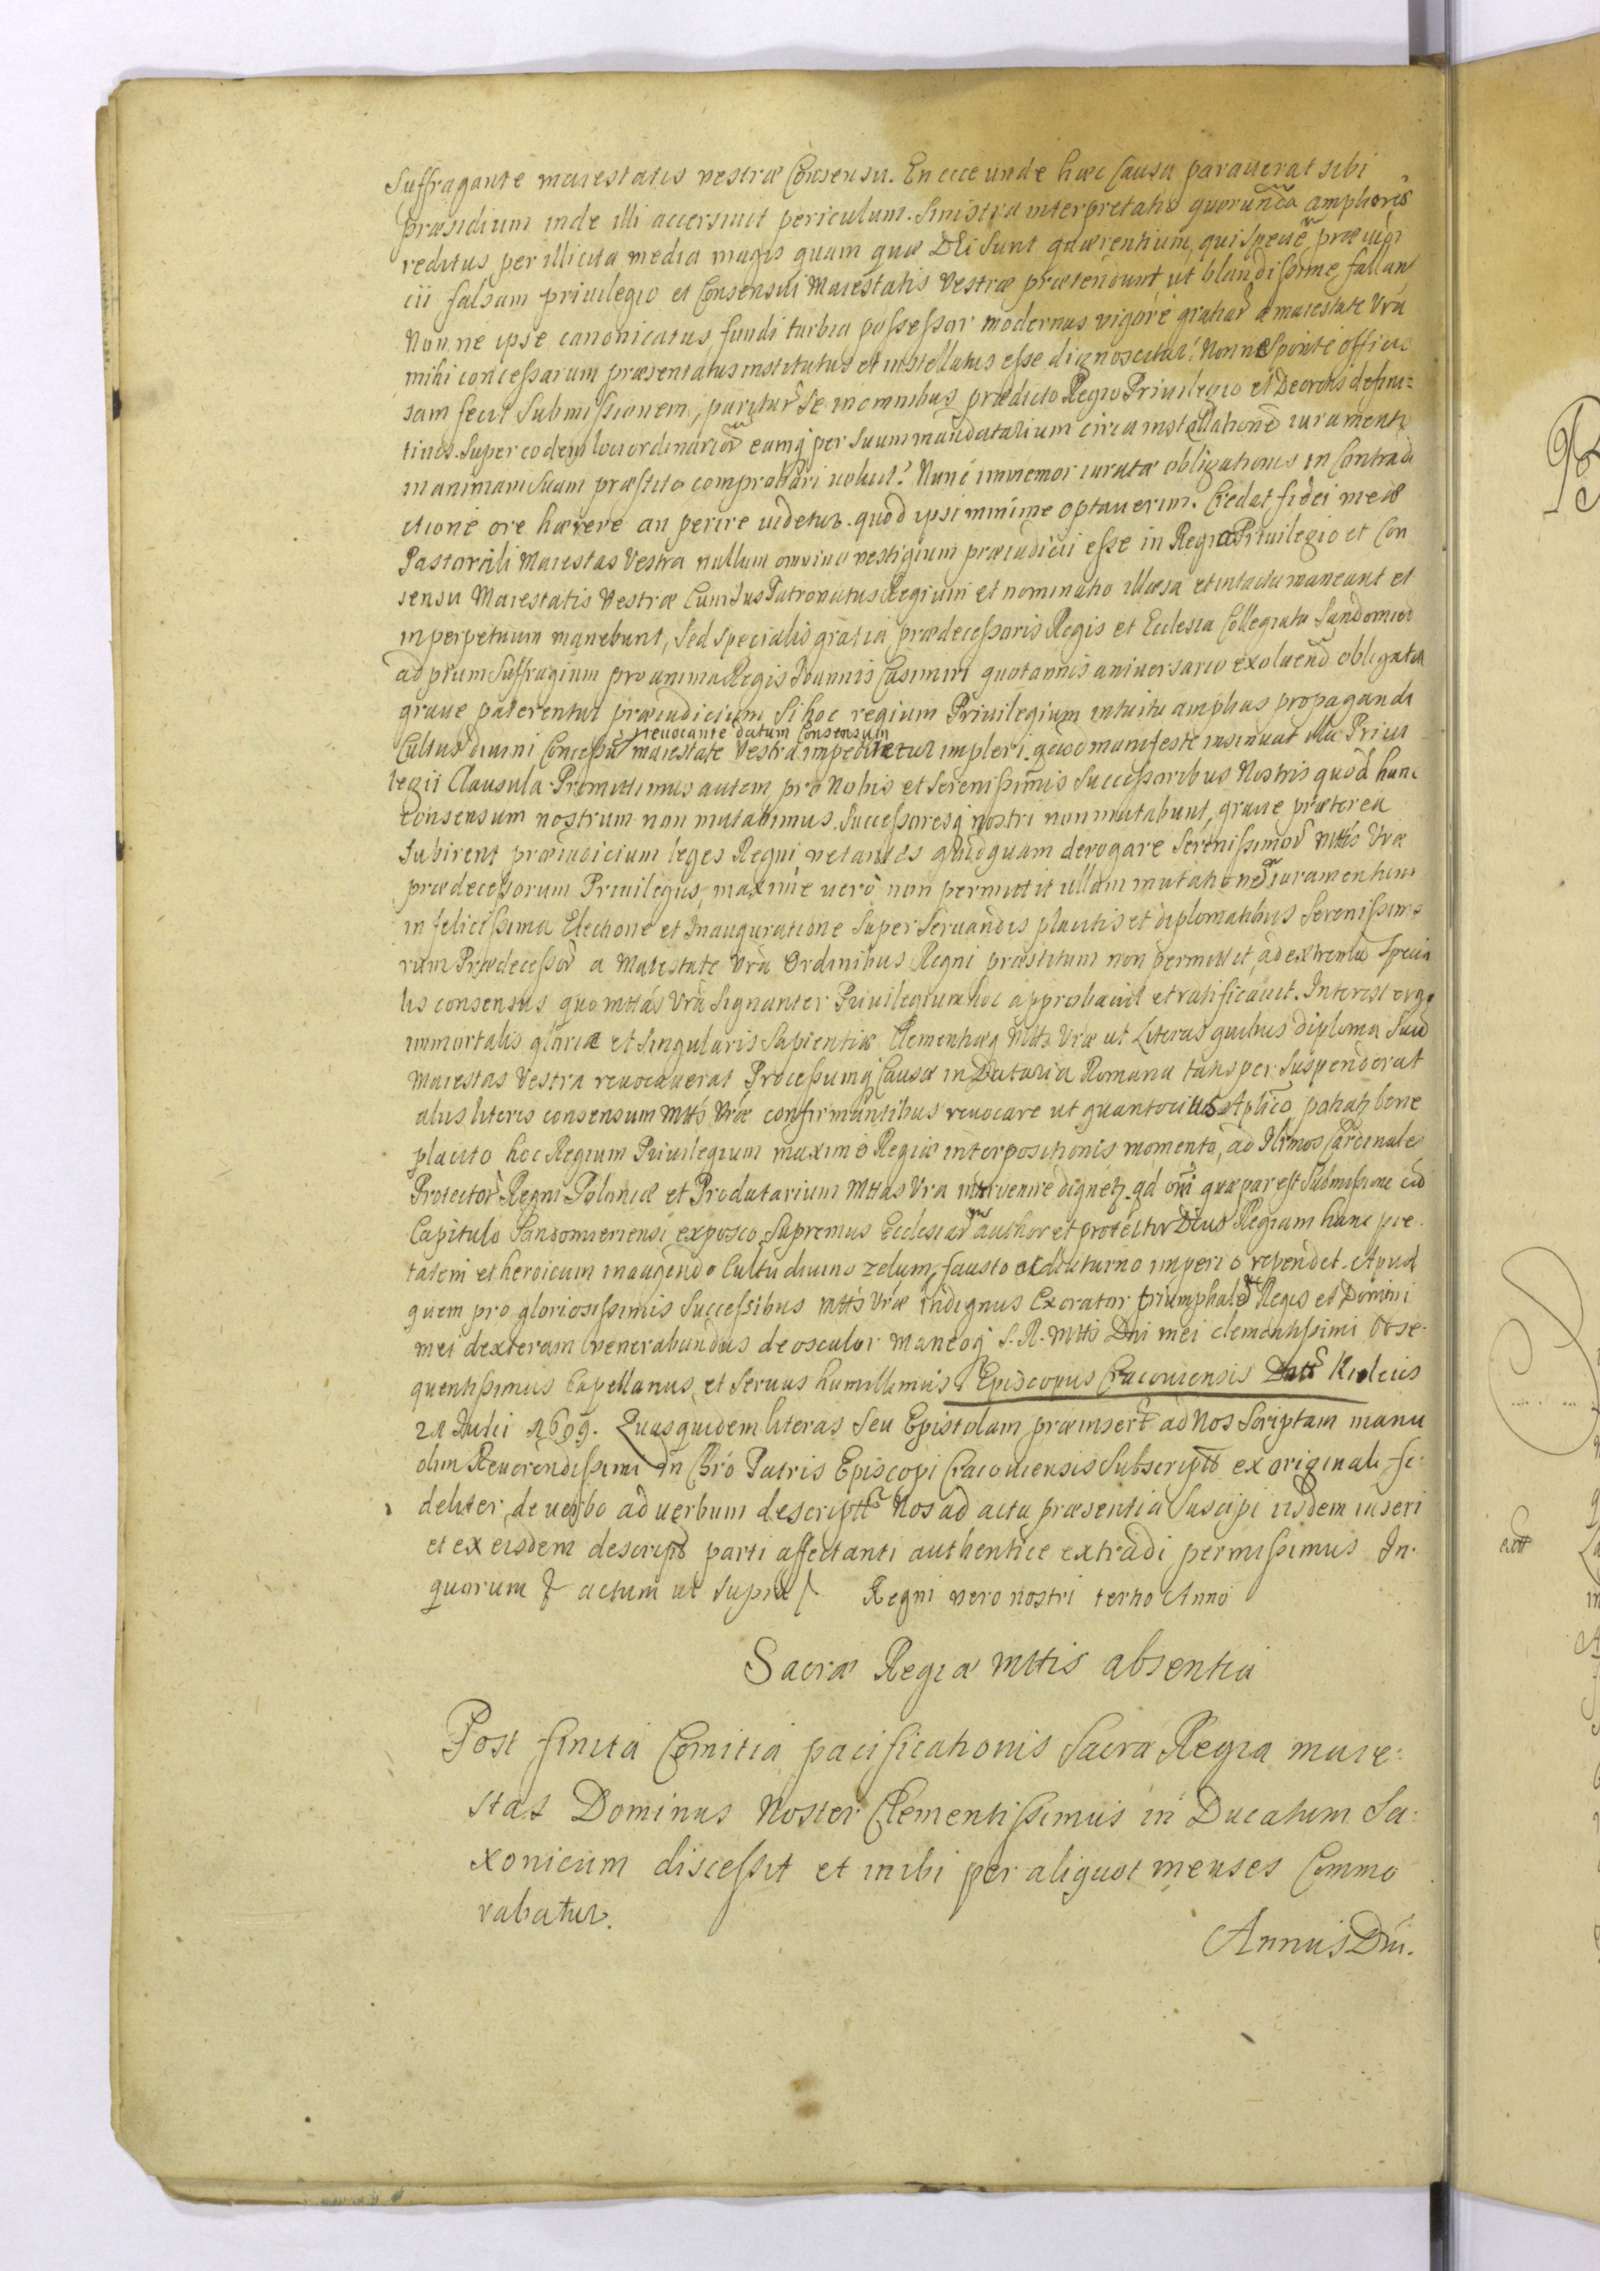 Suffragante maiestatis vestræ Consensu. En ecce unde hæc Causa parauerat sibi
præsidium inde illi accersiuit periculum. Sinistra interpretatio quorundã ampliores
reditus per illicita media magis quam quæ DEi sunt quærentium, qui speciẽ præiudi
cii falsam priuilegio et Consensui Maiestatis Vestræ prætendunt ut blandissime fallant
Non ne ipse canonicatus fundi turbia possessor modernus vigore gratiar a maiestate Vrã
mihi concessarum præsentatus institutus et installatus esse dignoscitur? Nonne sponte officio
sam fecit Submissionem, pariturũ se in omnibus prædicto Regio Priuilegio et Decretis defini=
tiuis super eodem loci ordinarior eamq per suum mandatarium circa installationẽ iuramento
in animam suam præstito comprobari uoluit? Nunc immemor iuratæ obligationis in Contradi
ctione ore hærere an perire uidetur. quod ipsi minime optauerim. Credat fidei meæ
Pastorali Maiestas Vestra nullum omnino vestigium præiudicii esse in Regio Priuilegio et Con
sensu Maiestatis Vestræ Cum Jus Patronatus Regium et nominatio illæsa et intacta maneant et
in perpetuum manebunt, sed specialis gratia prædecessoris Regis et Ecclesia Collegiata Sandomird
ad pium suffragium pro anima Regis Joannis Casimiri quotannis aniuersario exoluend obligata
graue paterentur præiudicium, Si hoc regium Priuilegium intuitu amplius propagandi
revocante datum Consensum
Cultus diuini Concessũ maiestate Vestra impediretur impleri. quod manifeste insinuat illa Priui
legii Clausula Promittimus autem pro Nobis et Serenissimis Successoribus Nostris quod hunc
Consensum nostrum non mutabimus. Successoresq nostri non mutabunt, graue præterea
subirent præiudicium leges Regni vetantes quidquam derogare Serenissimor Mttis Vræ
prædecessorum Priuilegiis, maxime uero non permittit ullam mutationẽ iuramentum
in felicissima Electione et Inauguratione super seruandis placitis et diplomatibus Serenissimo
rum Prædecessor a Maiestate Vrã Ordinibus Regni præstitum non permittit, ad extremũ specia
lis consensus quo mttas Vrã signanter Priuilegium hoc approbauit et ratificauit. Interest ergo
immortalis gloriæ et singularis sapientiæ Clementiæq Mttis Vræ ut Literas quibus diploma suũ
Maiestas Vestra reuocauerat Processumq Causæ in Dataria Romana tantisper suspenderat
aliis literis consensum Mttis Vræ confirmantibus reuocare ut quantocius Aplico potiatr bene
placito hoc Regium Priuilegium maxime Regiæ interpositionis momento, ad Illmos Cardinales
Protector Regni Poloniæ et Prodatarium Mttas Vra interuenire dignetr. qd omi qua par est submissione cũ
Capitulo Sandomiriensi exposco, Supremus Ecclesiar author et protector Deus Regiam hanc pie.
tatem et heroicum in augendo Cultu diuino zelum, fausto ac diuturno imperio rependet. Apud
quem pro gloriosissimis successibus Mttis Vræ indignus Exorator triumphalẽ Regis et Domini
mei dexteram venerabundus deosculor maneoq S. R. Mttis Dni mei clementissimi Obse-
quentissimus Capellanus, et Seruus humillimus Episcopus Cracouiensis Datt Kielciis
21 Julii 1699. Quas quidem literas seu Epistolam præinsert ad Nos scriptam manu
olim Reuerendissimi in Chro Patris Episcopi Cracouiensis subscriptã ex originali fi-
deliter de uerbo ad uerbum descriptt Nos ad acta præsentia suscipi iisdem inseri
et ex eisdem descriptã parti affectanti authentice extradi permisimus In.
quorum & actum ut supra Regni vero nostri tertio Anno
Sacræ Regiæ Mttis absentia
Post finita Comitia pacificationis Sacra Regia maie:
stas Dominus Noster Clementissimus in Ducatum Sa:
xonicum discessit et inibi per aliquot menses Commo
rabatur.
Annus Dni.